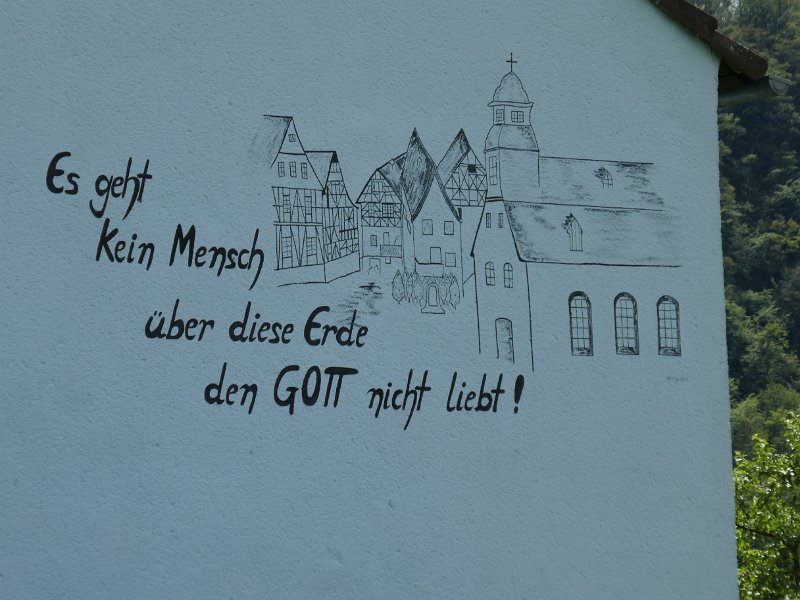 Es geht
kein Mensch
über diese Erde
den GOTT nicht liebt!